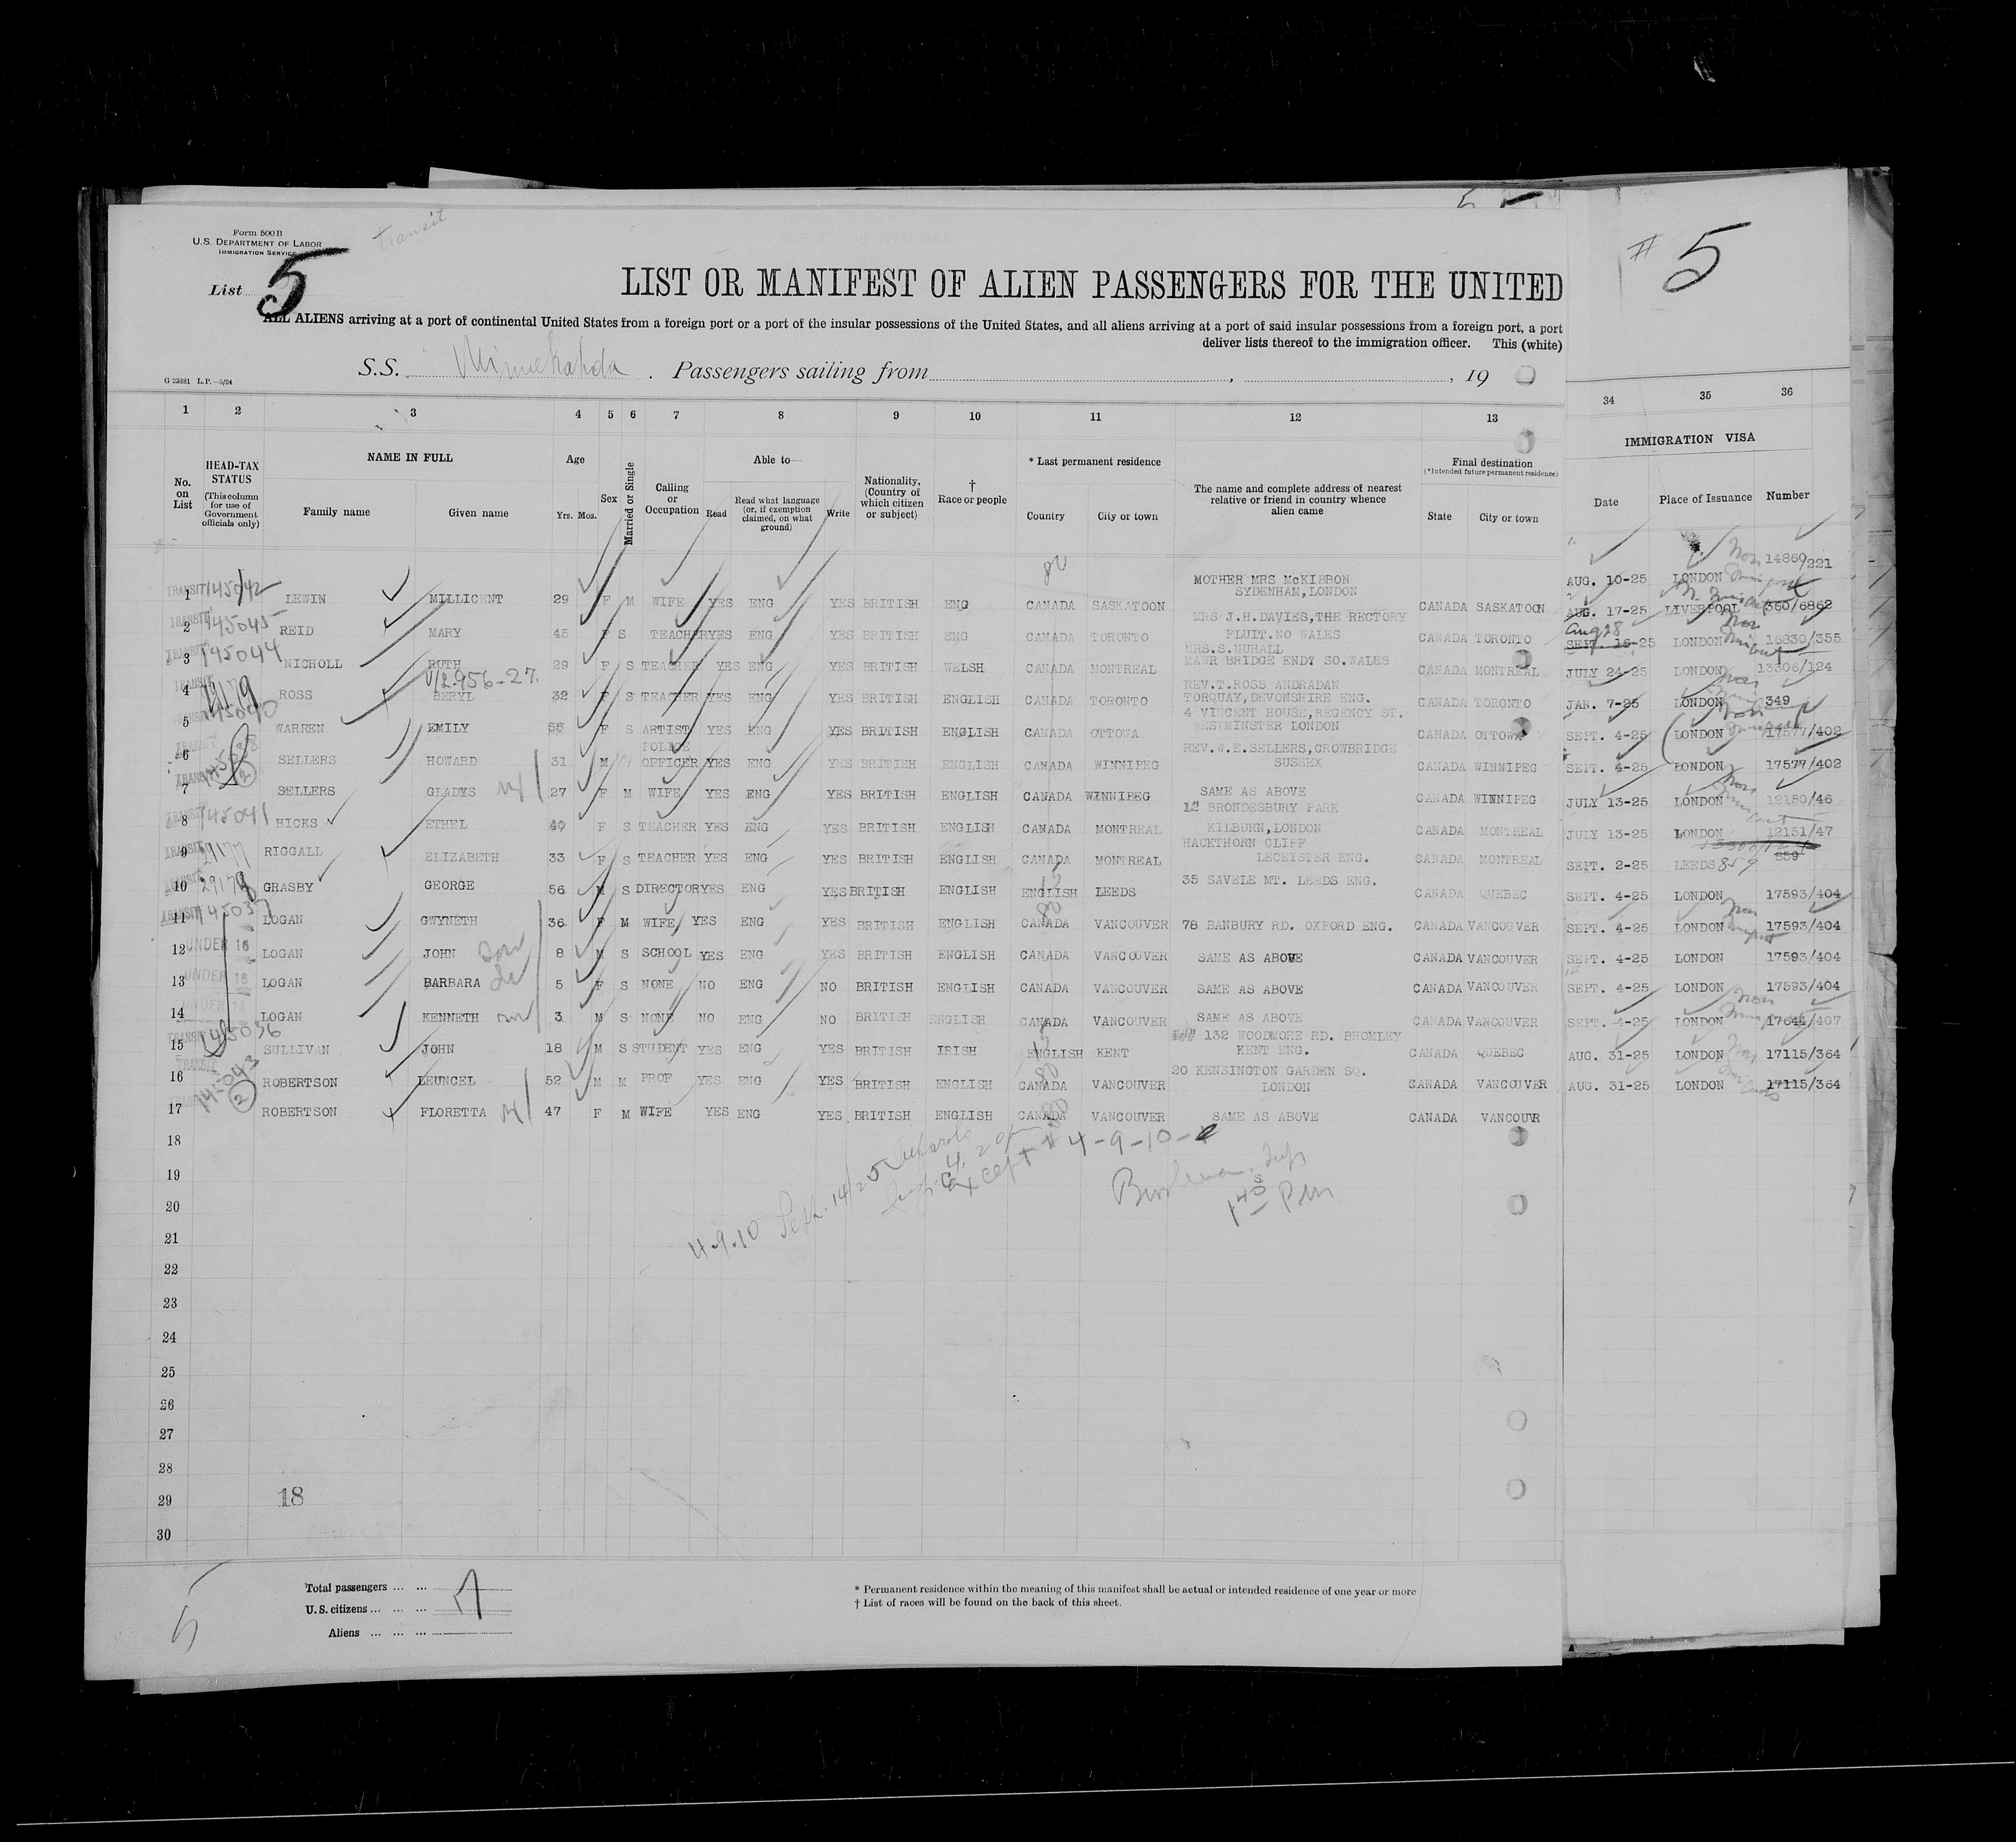 Form 500B
U.S. DEPARTMENT OF LABOR
IMMIGRATION SERVICE
transit
List 5
# 5
LIST OR MANIFEST OF ALIEN PASSENGERS FOR THE UNITED
ALL ALIENS arriving at a port of continental United States from a foreign port or a port of the insular possessions of the United States, and all aliens arriving at a port of said insular possessions from a foreign port, a port
deliver lists thereof to the immigration officer. This (white)
S.S. Minnekahda . Passengers sailing from , , 19
G 23881 L.P.—5/24
1 2 3 4 5 6 7 8 9 10 11 12 13 34 35 36
No. on List
HEAD-TAX STATUS
(This column for use of Government officials only)
NAME IN FULL
Family name Given name
Age
Yrs. Mos.
Sex
Married or Single
Calling or Occupation
Able to—
Read
Read what language (or, if exemption claimed, on what ground)
Write
Nationality, (Country of which citizen or subject)
† Race or people
* Last permanent residence
Country City or town
The name and complete address of nearest relative or friend in country whence alien came
Final destination
(*Intended future permanent residence)
State City or town
IMMIGRATION VISA
Date Place of Issuance Number
1 TRANSIT 145042 LEWIN MILLICENT 29 F M WIFE YES ENG YES BRITISH ENG CANADA SASKATOON MOTHER MRS McKIBBON SYDENHAM, LONDON CANADA SASKATOON AUG. 10-25 LONDON 14860/221
2 TRANSIT 145045 REID MARY 45 F S TEACHER YES ENG YES BRITISH ENG CANADA TORONTO MRS J.H.DAVIES, THE RECTORY FLUIT.NO WALES CANADA TORONTO AUG. 17-25 LIVERPOOL 360/6862
3 TRANSIT 145044 NICHOLL RUTH 29 F S TEACHER YES ENG YES BRITISH WELSH CANADA MONTREAL MRS.S.NUHALL MAWR BRIDGE END? SO.WALES CANADA MONTREAL Aug 28 SEPT. 16-25 LONDON 16830/355
4 TRANSIT 29179 ROSS V/L 956-27. BERYL 32 F S TEACHER YES ENG YES BRITISH ENGLISH CANADA TORONTO REV.T.ROSS ANDRADAN TORQUAY, DEVONSHIRE ENG. CANADA TORONTO JULY 24-25 LONDON 13306/124
5 TRANSIT 145040 WARREN EMILY 55 F S ARTIST YES ENG YES BRITISH ENGLISH CANADA OTTOWA 4 VINCENT HOUSE, REGENCY ST. WESTMINSTER LONDON CANADA OTTOWA JAN. 7-25 LONDON 349
6 SELLERS HOWARD 31 M POLICE OFFICER YES ENG YES BRITISH ENGLISH CANADA WINNIPEG REV.W.E.SELLERS, CROWBRIDGE SUSSEX CANADA WINNIPEG SEPT. 4-25 LONDON 17577/402
7 TRANSIT 145038 (2) SELLERS GLADYS 27 F M WIFE YES ENG YES BRITISH ENGLISH CANADA WINNIPEG SAME AS ABOVE CANADA WINNIPEG SEPT. 4-25 LONDON 17577/402
8 TRANSIT 145041 HICKS ETHEL 40 F S TEACHER YES ENG YES BRITISH ENGLISH CANADA MONTREAL 12 BRONDESBURY PARK KILBURN, LONDON CANADA MONTREAL JULY 13-25 LONDON 12150/46
9 TRANSIT 29177 RIGGALL ELIZABETH 33 F S TEACHER YES ENG YES BRITISH ENGLISH CANADA MONTREAL HACKTHORN CLIFF LECEISTER ENG. CANADA MONTREAL JULY 13-25 LONDON 12151/47
10 TRANSIT 29178 GRASBY GEORGE 56 M S DIRECTOR YES ENG YES BRITISH ENGLISH ENGLISH LEEDS 35 SAVELE MT. LEEDS ENG. CANADA QUEBEC SEPT. 2-25 LEEDS 859 859
11 TRANSIT 145037 LOGAN GWYNETH 36 F M WIFE YES ENG YES BRITISH ENGLISH CANADA VANCOUVER 78 BANBURY RD. OXFORD ENG. CANADA VANCOUVER SEPT. 4-25 LONDON 17593/404
12 UNDER 16 LOGAN JOHN 8 M S SCHOOL YES ENG YES BRITISH ENGLISH CANADA VANCOUVER SAME AS ABOVE CANADA VANCOUVER SEPT. 4-25 LONDON 17593/404
13 UNDER 16 LOGAN BARBARA 5 F S NONE NO ENG NO BRITISH ENGLISH CANADA VANCOUVER SAME AS ABOVE CANADA VANCOUVER SEPT. 4-25 LONDON 17593/404
14 UNDER 16 LOGAN KENNETH 3 M S NONE NO ENG NO BRITISH ENGLISH CANADA VANCOUVER SAME AS ABOVE CANADA VANCOUVER SEPT. 4-25 LONDON 17593/404
15 TRANSIT 145036 SULLIVAN JOHN 18 M S STUDENT YES ENG YES BRITISH IRISH ENGLISH KENT 132 WOODMORE RD. BROMLEY KENT ENG. CANADA QUEBEC SEPT. 4-25 LONDON 17644/407
16 TRANSIT 145043 ROBERTSON LEUNCEL 52 M M PROF YES ENG YES BRITISH ENGLISH CANADA VANCOUVER 20 KENSINGTON GARDEN SQ. LONDON CANADA VANCOUVER AUG. 31-25 LONDON 17115/364
17 (2) ROBERTSON FLORETTA 47 F M WIFE YES ENG YES BRITISH ENGLISH CANADA VANCOUVER SAME AS ABOVE CANADA VANCOUVR AUG. 31-25 LONDON 17115/364
18
19
20
21
22
23
24
25
26
27
28
29
30
except 4-9-10
4-9-10 Sept. 14/25
18
5
Total passengers ... ...
U.S. citizens ... ... ...
Aliens ... ... ...
* Permanent residence within the meaning of this manifest shall be actual or intended residence of one year or more
† List of races will be found on the back of this sheet.